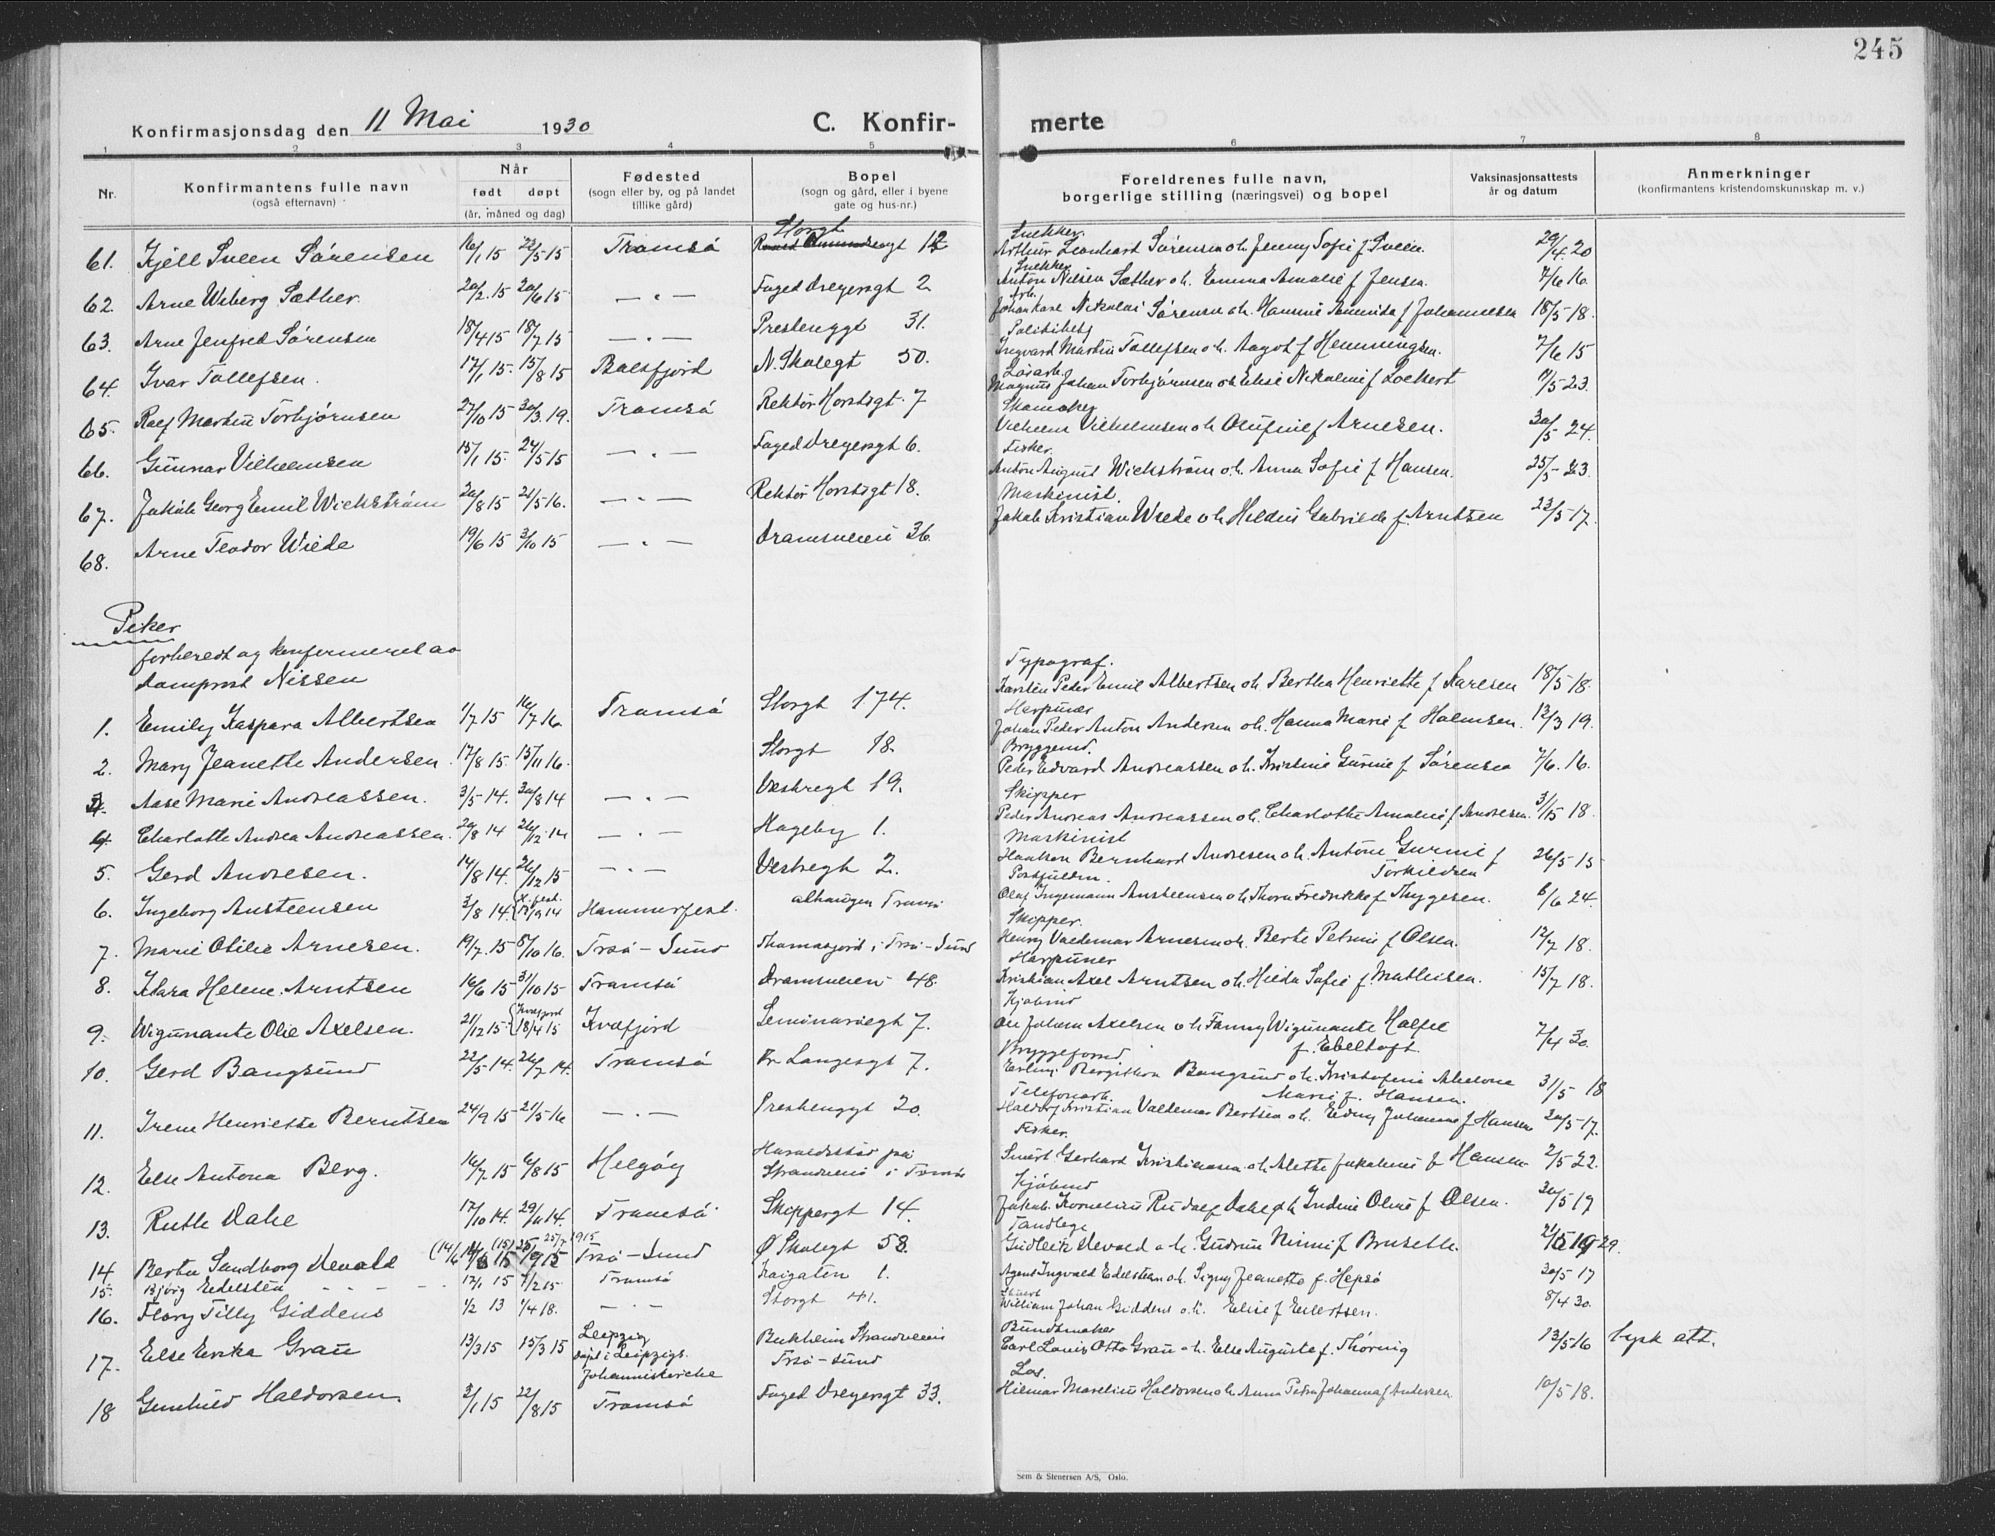 245
Konfirmasjonsdag den 11 Mai 1930 C. Konfir- merte
1 2 3 4 5 6 7 8
Nr. Konfirmantens fulle navn (også efternavn) Når født døpt (år, måned og dag) Fødested (sogn eller by, og på landet tillike gård) Bopel (sogn og gård, eller i byene gate og hus-nr.) Foreldrenes fulle navn, borgerlige stilling (næringsvei) og bopel Vaksinasjonsattests år og datum Anmerkninger (konfirmantens kristendomskunnskap m. v.)
61. Kjell Sveen Sørensen 16/1 15 22/5 15 Tromsø Storgt 12 Snekker. Arthur Leonhard Sørensen o.h. Jenny Sofie f. Sveen. 29/4 20
62. Arne Wiberg Sæther. 20/2 15 20/6 15 — " — Foged Dreyersgt 2 Snekker Anton Nilsen Sæther o.h. Emma Amalie f. Jensen. 7/6 16.
63. Arne Jenfred Sørensen 18/4 15 18/7 15 — " — Prestenggt 31. Arb. Johan Karl Nikolai Sørensen o.h. Hansine f. Johannesen 18/5 18.
64. Ivar Tollefsen. 17/1 15. 15/8 15 Balsfjord N. Skolegt 50. Politibetj Ingvard Martin Tollefsen o.h. Aagot f. Hemmingsen. 7/6 15
65. Rolf Martin Torbjørnsen 27/10 15 30/3 19. Tromsø Rektor Horstsgt. 7 Løsarb. Magnus Johan Torbjørnsen o.h. Elise Nikoline f. Lockert 11/5 23.
66. Gunnar Vilhelmsen 15/1 15. 24/5 15 — " — Foged Dreyersgt 6. Skomaker Vilhelm Vilhelmsen o.h. Olufine f. Arnesen. 30/5 24.
67. Jakob Georg Emil Wickstrøm 20/8 15 21/5 16. — " — Rektor Horstsgt 18. Fisker. Anton August Wickstrøm o.h. Anna Sofie f. Hansen. 25/5 23.
68. Arne Teodor Wiede 19/6 15 3/10 15 — " — Dramsveien 36. Maskinist. Jakob Kristian Wiede o.h. Hildus Gabrielle f. Arntsen 23/5 17.
Piker
forberedt og konfirmeret av
domprost Nissen
1. Emily Kaspara Albertsen 1/7 15 16/7 16. Tromsø Storgt 174. Typograf. Karsten Peder Emil Albertsen o.h. Bertha Henriette f. Karlsen 18/5 18.
2. Mary Jeanette Andersen. 17/8 15. 15/11 16. Storgt 18. Harpunér Johan Peder Anton Andersen o.h. Hanna Marie f. Holmsen. 12/3 19.
3. Aase Marie Andreassen. 3/5 14. 30/8 14 — " — Vestregt 19. Bryggemd. Peder Edvard Andreassen o.h. Kristine Gurine f. Sørensen 7/6. 16.
4. Charlotte Andrea Andreassen. 20/8 14 26/12 14 — " — Hageby 1. Skipper Peder Andreas Andreassen o.h. Charlotte Amalie f. Andresen. 3/5 18.
5. Gerd Andresen. 14/8 14. 26/12 15 — " — Vestregt 2. Maskinist Haakon Bernhard Andresen o.h. Antone Gurine f. Torkildsen 26/5 15
6. Ingeborg Austeensen 3/8 14. 9 14 Hammerfest. Olaf Ingemann Austeensen o.h. Thora Fredrikke f. Thygesen. 6/6 24.
7. Marie Otilie Arnesen. 19/7. 15 8/10 16. Trsø-Sund Thomasjord i Trsø-Sund Skipper. Henry Valdemar Arnesen o.h. Berte Petrine f. Olsen. 12/7 18.
8. Klara Helene Arntsen 16/6 15 31/10 15 Tromsø Dramsveien 48. Harpuner Kristian Axel Arntsen o.h. Hilda Sofie f. Mathisen. 15/7 18.
9. Wigunante Olie Axelsen. 21/12 15 Kvæfjord 18/4 15 Kvæfjord Seminariegt 7. Kjøbmd Ole Johan Axelsen o.h. Fanny Wigunante Holfie f. Ebeltoft. 7/4 30.
10. Gerd Bangsund 22/5 14. 26/7 14. Tromsø Dr Langesgt 7. Bryggeformd Erling Bergithon Bangsund o.h. Kristofine Marie f. Hansen. 31/5 18
11. Irene Henriette Berntsen 24/9 15 21/5 16 — " — Prestenggt 20. Telefonarb. Haldor Kristian Valdemar Bertsen o.h. Edny Johanne f. Hansen 20/5 17.
12. Else Antona Berg. 16/7. 15 6/8 15 Helgøy Haraldsstad på Strandveien i Tromsø Fisker. Gerhard Kristiansen o.h. Alette Jakobine f. Hansen 2/5 22.
13. Ruth Dahl 17/10 14. 29/11 14. Tromsø. Skippergt 14. Kjøbmd Jakob Kornelius Rudolf Dahl o.h. Indine Oline f. Olsen. 30/5 17
14. Berta Sandborg Devold Trsø-Sund Ø Skolegt 58. Tandlege Gudleik Devold o.h. Gudrun Ninni f. Brusetti.
15. Bjørg Edelsteen 12/1 15 4/2 15 Tromsø Kaigaten 1. Agent Ingvald Edelsteen o.h. Signy Jeanette f. Hepsø 20/5 17
16. Flory Tilly Giddens 1/2 13 1/4 18. — " — Storgt 41. William Johan Giddens o.h. Elise f. Eilertsen. 8/4 30.
17. Else Erika Grau 13/3 15 15/3 15 Leipzig Døpt i Leipzigs Johanniskirche Bekheim Strandveien Trsø-sund Bundtmaker Carl Louis Otto Grau o.h. Else Auguste f. Thörnig 13/5 16 tysk att.
18 Gunhild Haldorsen. 3/1 15 22/8 15 Tromsø Foged Dreyersgt 33. Los. Hilmar Marelius Haldorsen o.h. Anna Petra Johanna f. Andersen. 10/5 18.
Sem & Stenersen A/S, Oslo.